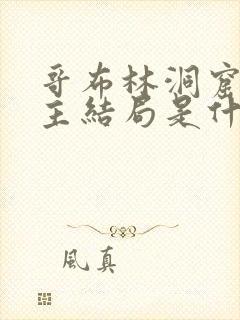 哥布林洞窟
主結局是什
風真